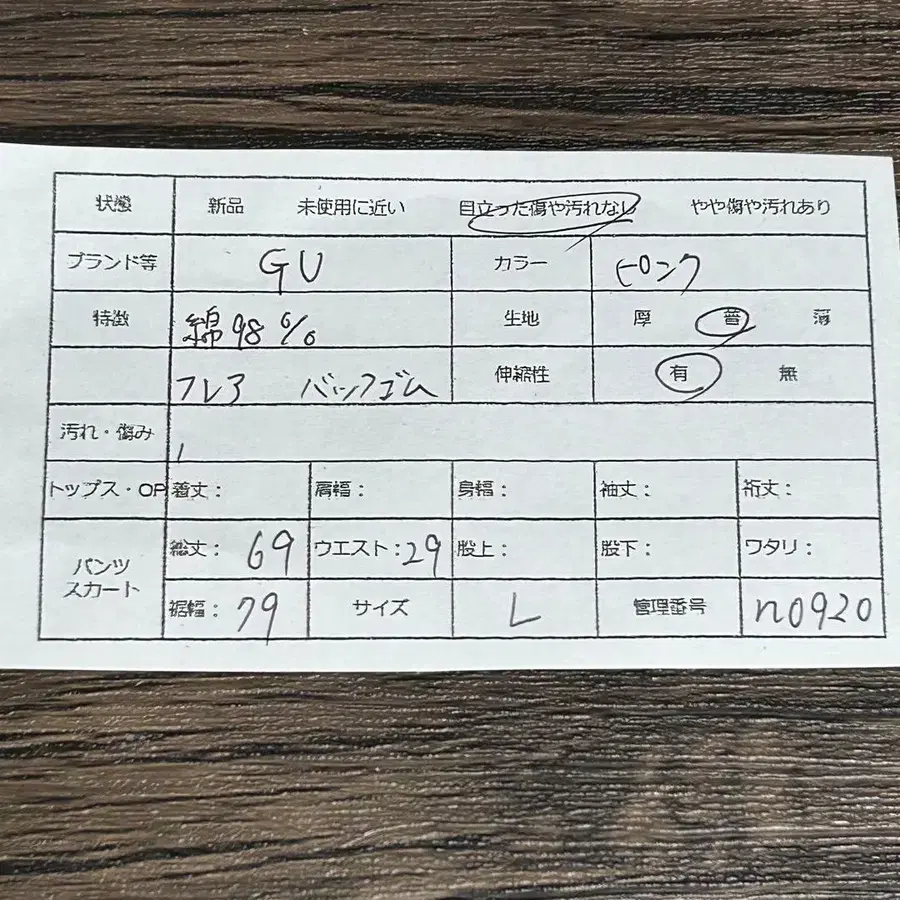 状態 新品 未使用に近い 目立った傷や汚れなし やや傷や汚れあり
ブランド等 GU カラー ピンク
特徴 綿98% 生地 厚 普 薄
フレア バックゴム 伸縮性 有 無
汚れ・傷み
トップス・OP 着丈: 肩幅: 身幅: 袖丈: 裄丈:
パンツ スカート 総丈: 69 ウエスト: 29 股上: 股下: ワタリ:
裾幅: 79 サイズ L 管理番号 n0920